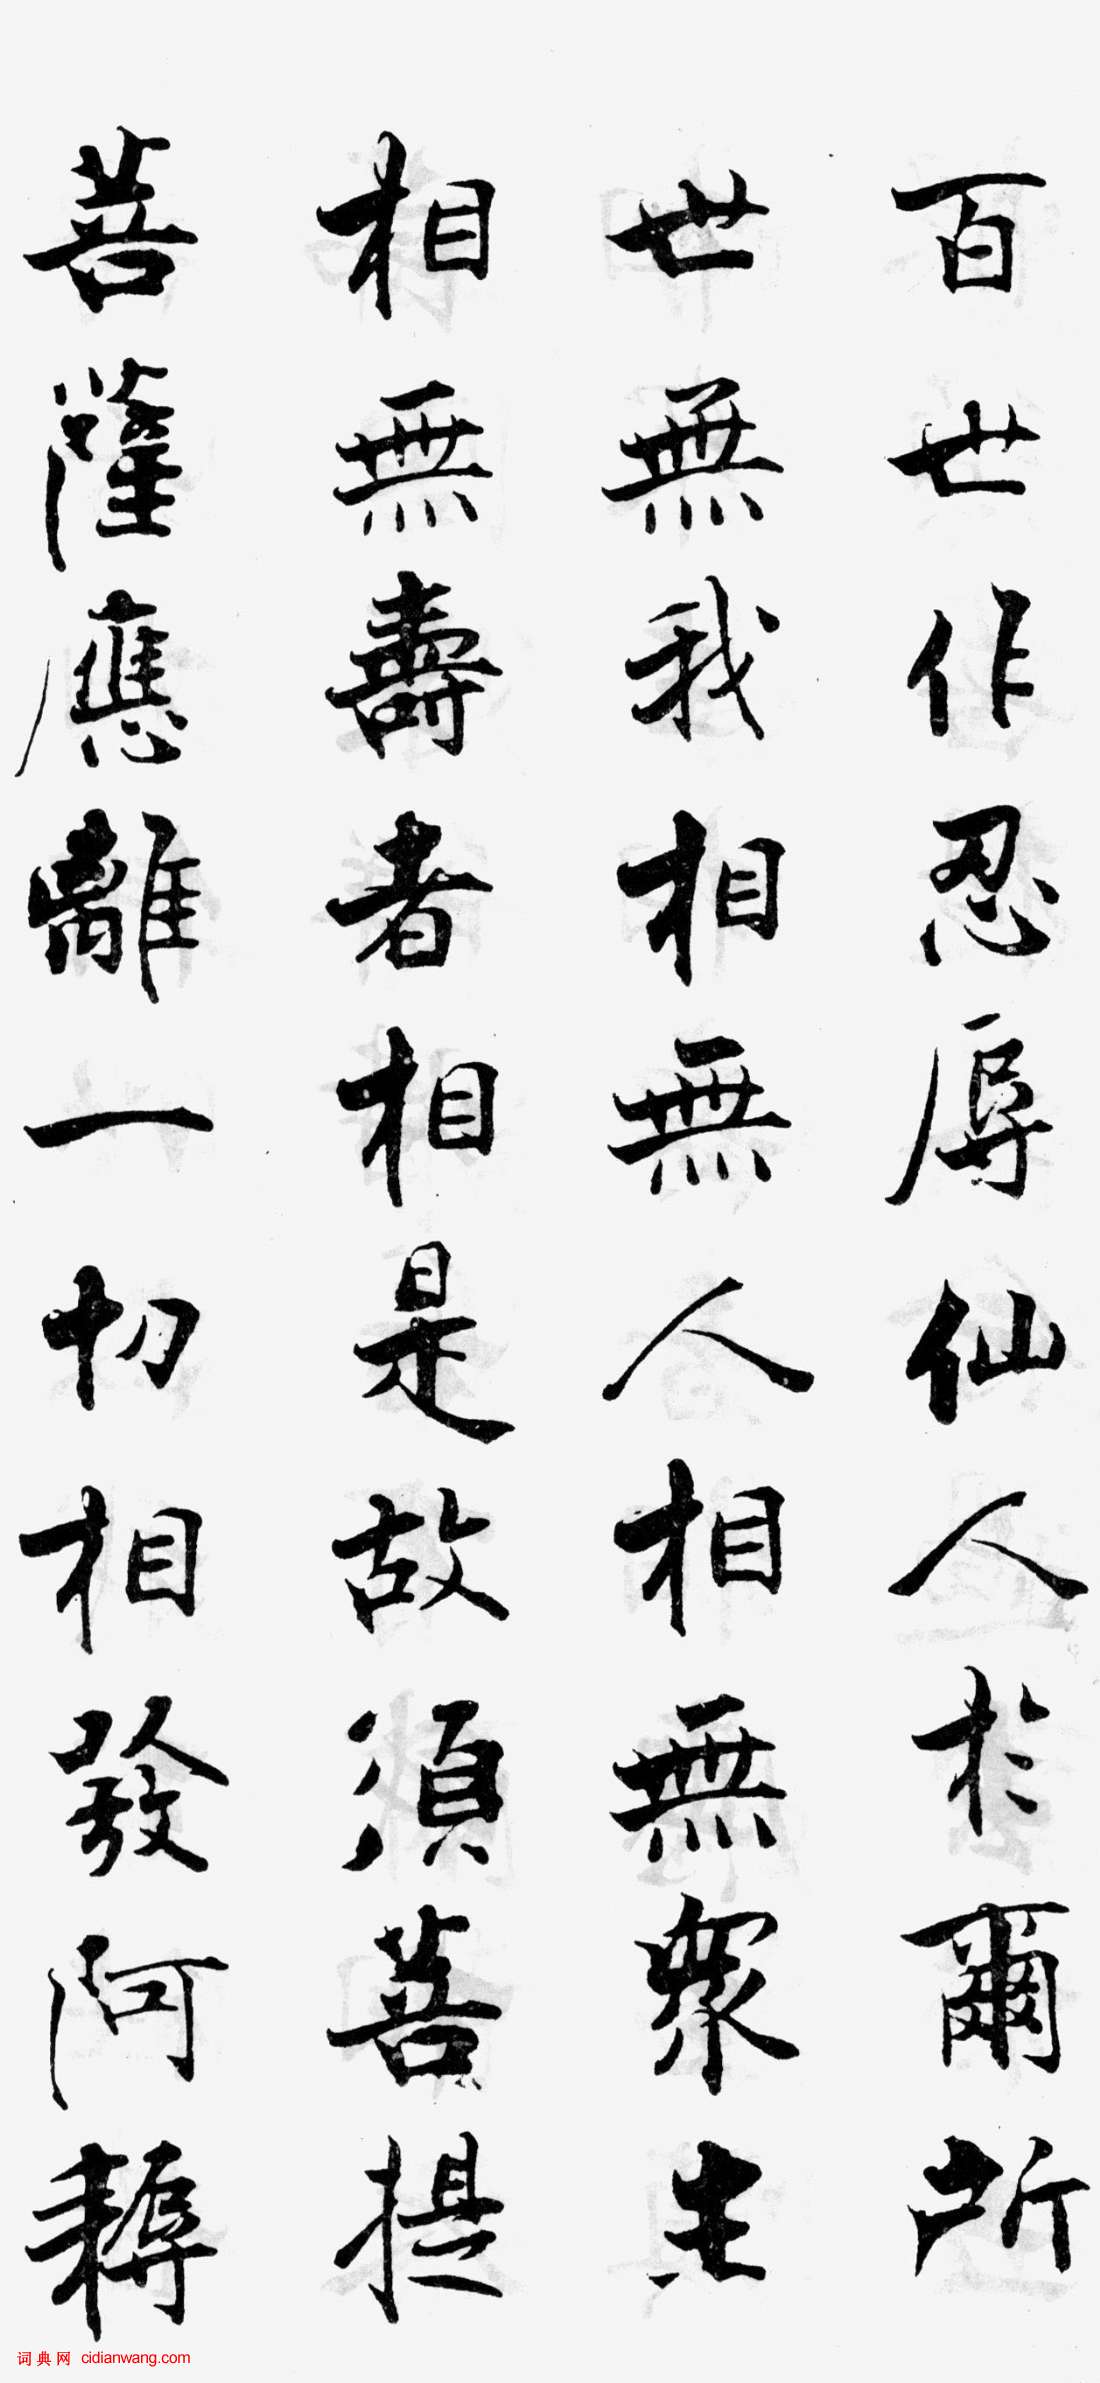 百世作忍辱仙人於爾所
世無我相無人相無衆生
相無壽者相是故須菩提
菩薩應離一切相發阿耨
词典网 cidianwang.com